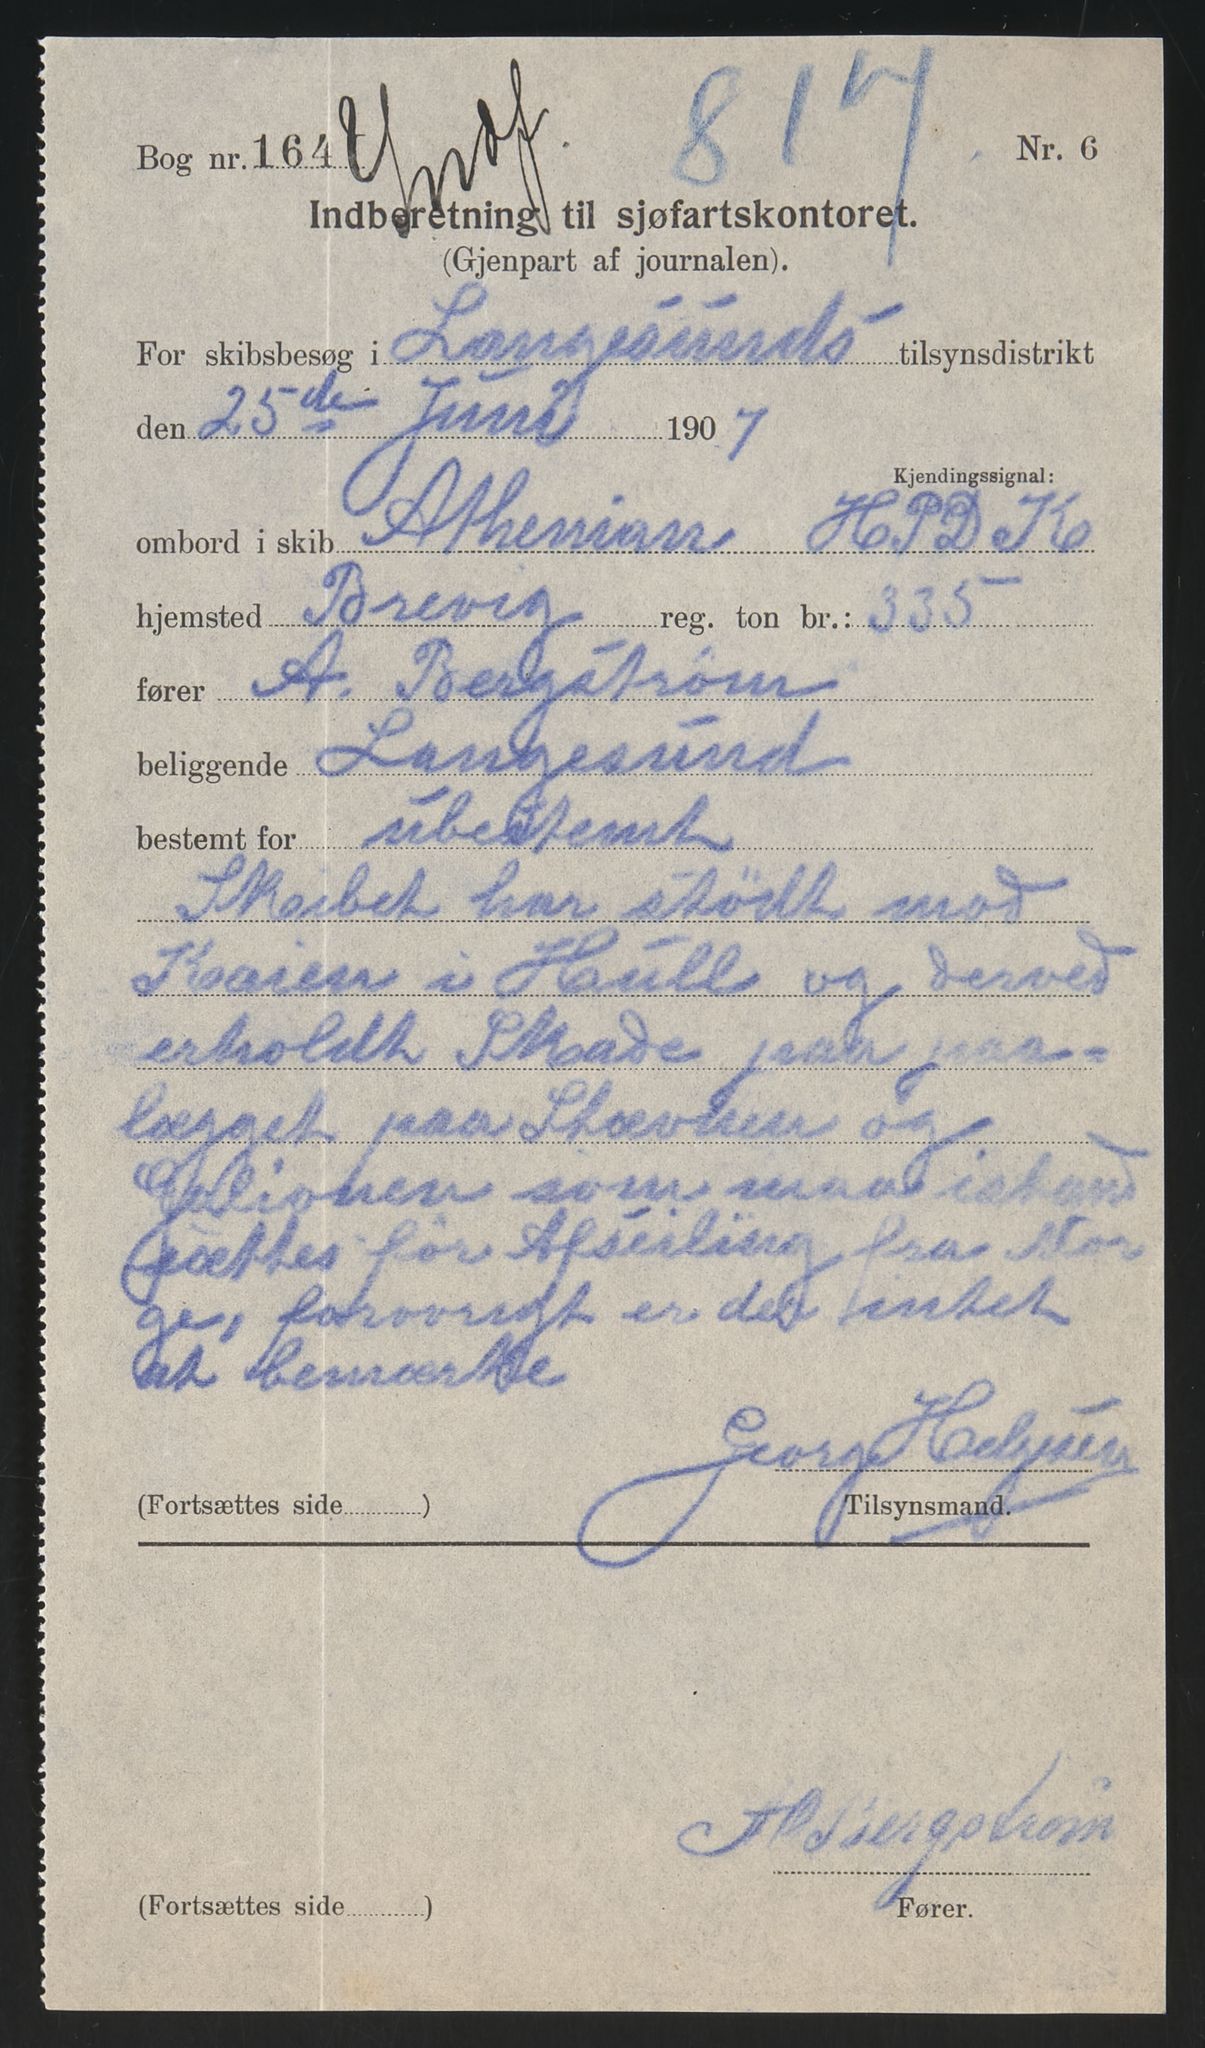 Bog nr. 164
817
Nr. 6
Indberetning til sjøfartskontoret.
(Gjenpart af journalen).
For skibsbesøg i Langesunds tilsynsdistrikt
den 25de Juni 1907
Kjendingssignal:
ombord i skib Athenian HPDK
hjemsted Brevig reg. ton br.: 335
fører A. Bergström
beliggende Langesund
bestemt for ubestemt
Skibet har stödt mod
Kaien i Hull og derved
erholdt Skade paa paa-
lægget paa Stævnen og
Galionen som maa istand
sættes för Afseiling fra Nor
ge, forovrigt er der intet
at bemærke
Georg Helgesen
(Fortsættes side ) Tilsynsmand.
A Bergström
(Fortsættes side ) Fører.